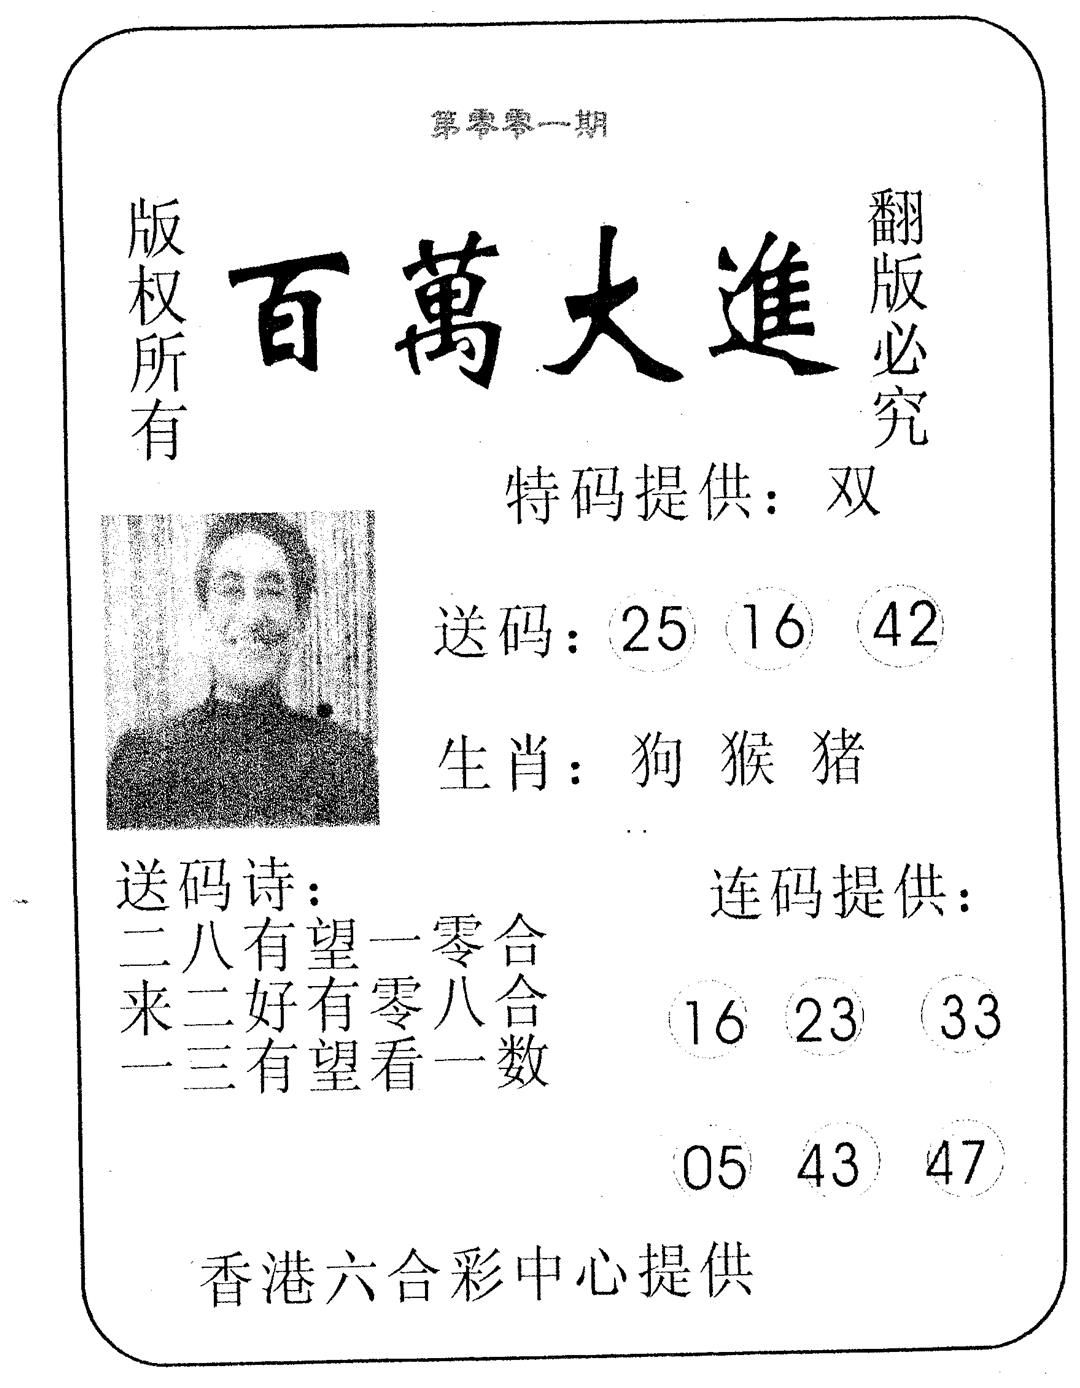 第零零一期
版权所有
百萬大進
翻版必究
特码提供：双
送码：25 16 42
生肖：狗 猴 猪
送码诗：
二八有望一零合
来二好有零八合
一三有望看一数
连码提供：
16 23 33
05 43 47
香港六合彩中心提供